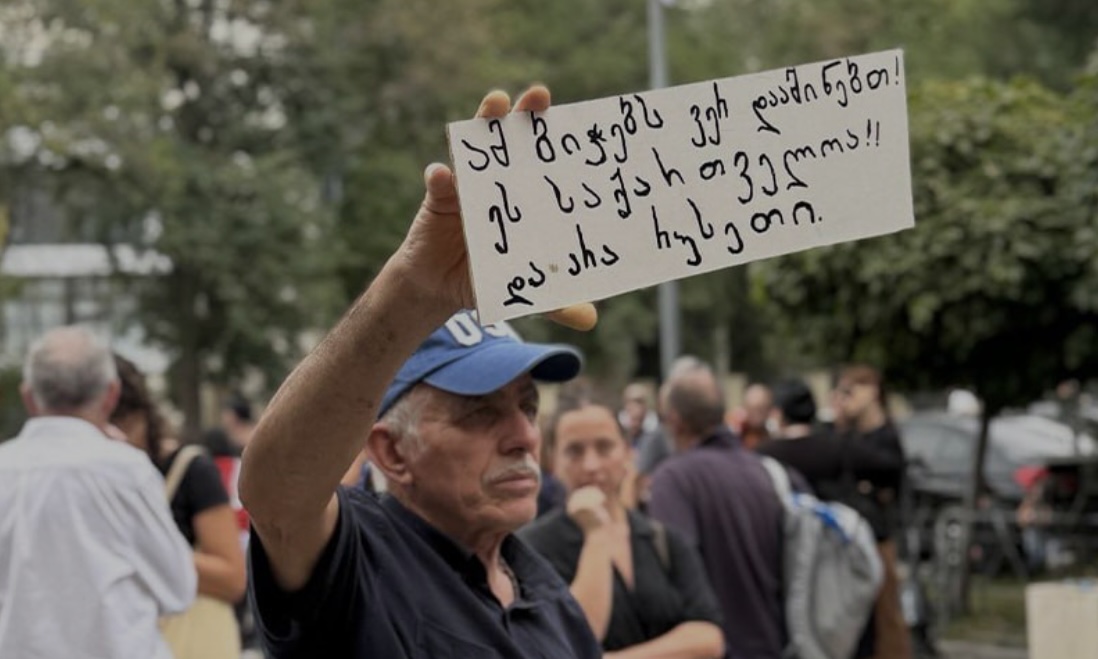 ამ ბიჭებს ვერ დააშინებთ!
ეს საქართველოა!!
და არა რუსეთი.